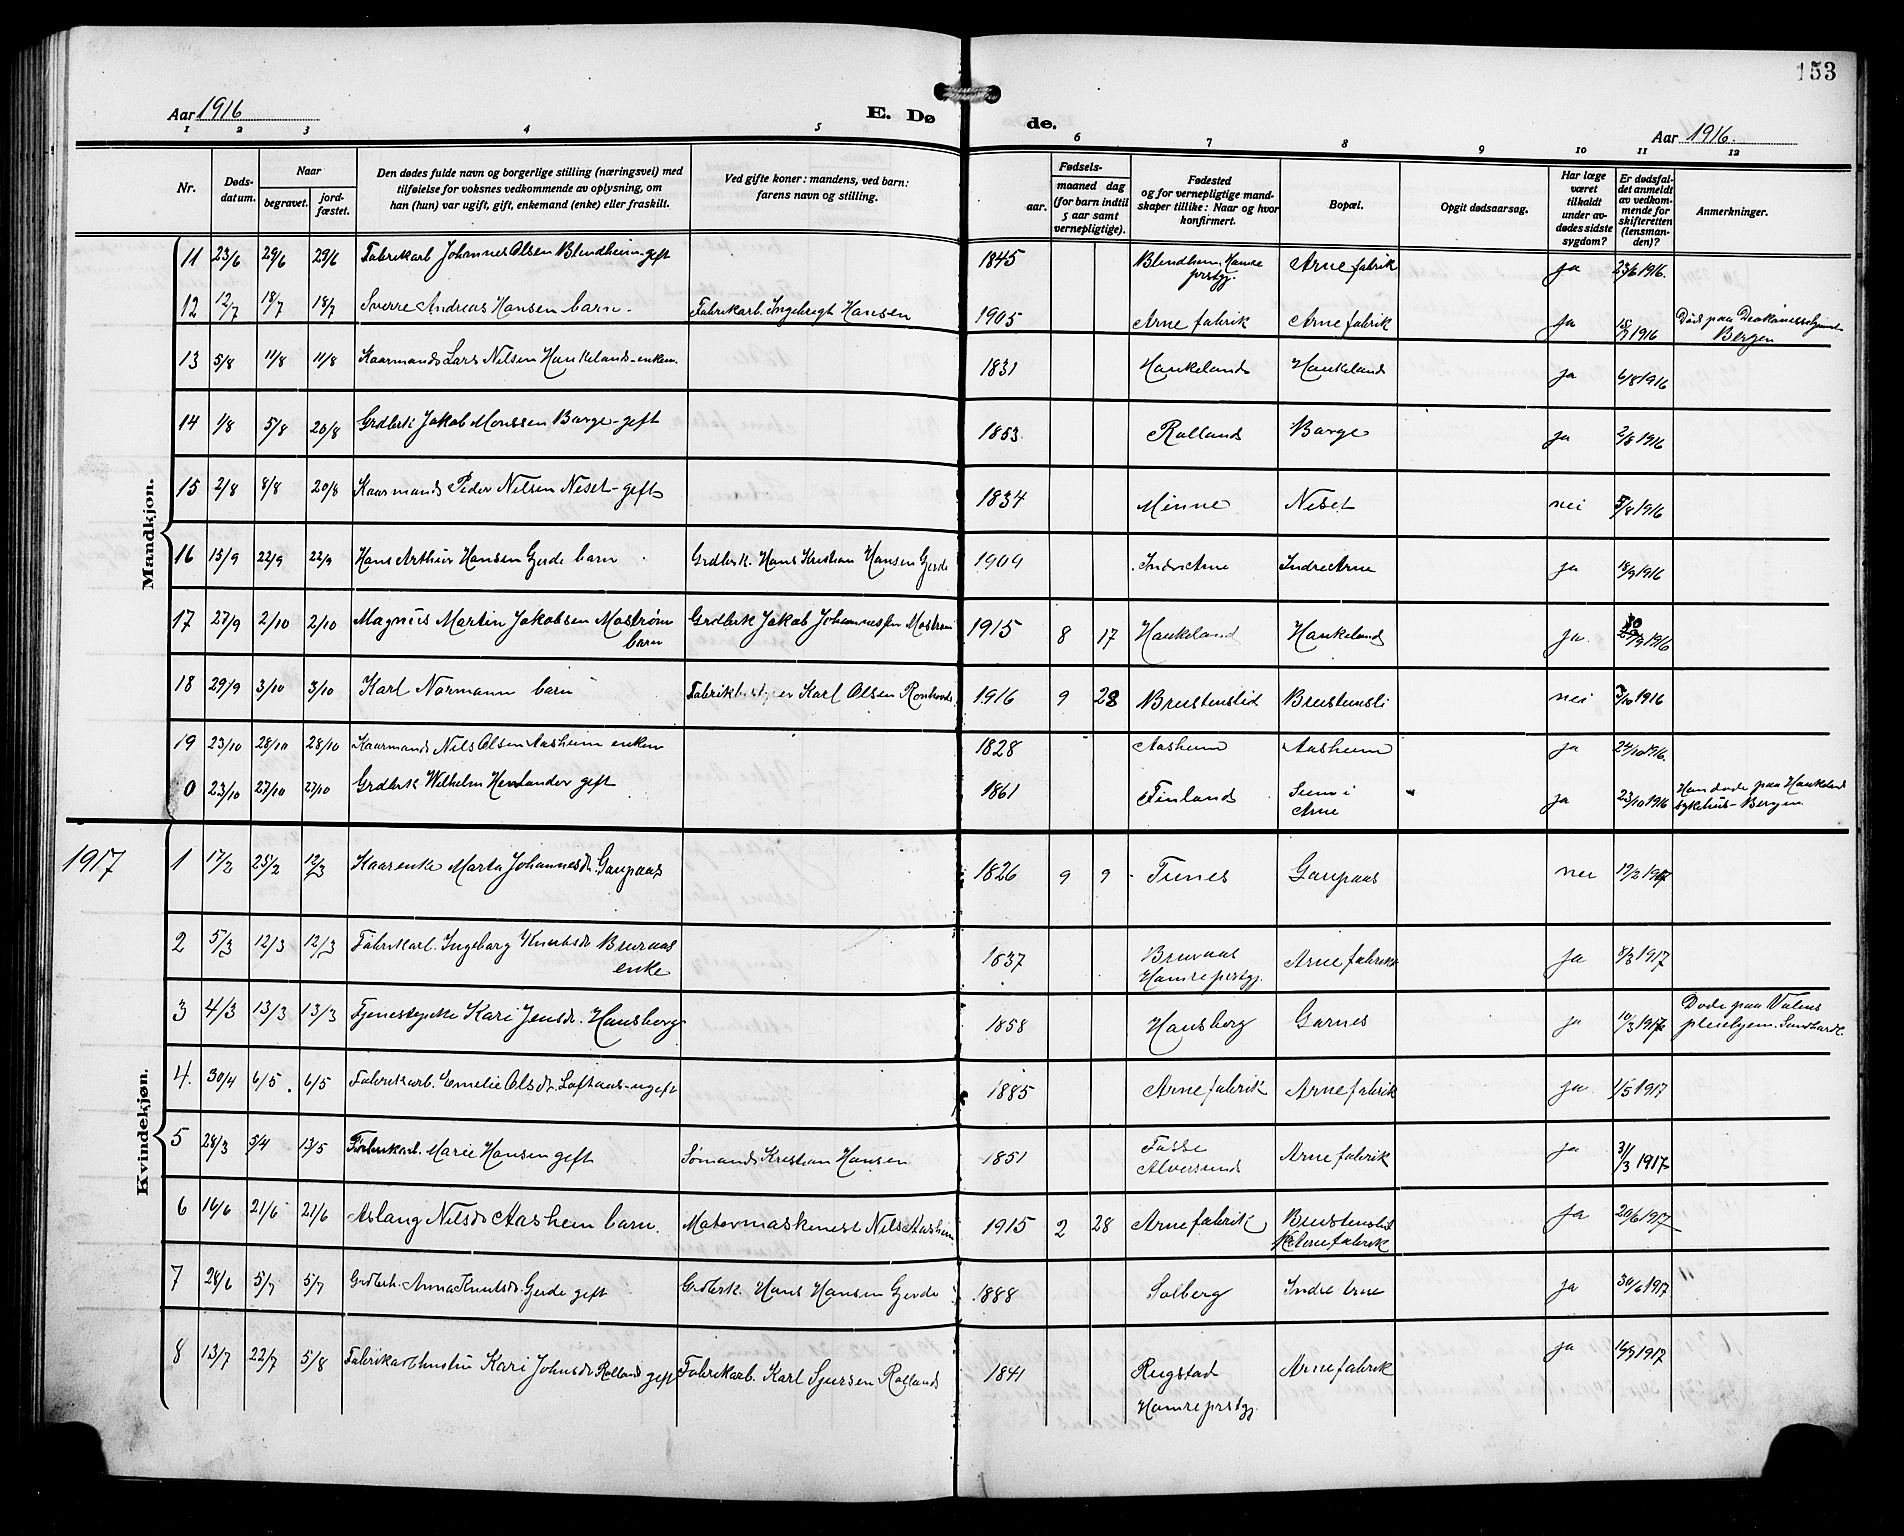 153
Aar 1916
E. Dø
de.
Aar 1916.
1 2 3 4 5 6 7 8 9 10 11 12
Nr.
Døds-
datum.
Naar
begravet.
jord-
fæstet.
Den dødes fulde navn og borgerlige stilling (næringsvei) med
tilføielse for voksnes vedkommende av oplysning, om
han (hun) var ugift, gift, enkemand (enke) eller fraskilt.
Ved gifte koner: mandens, ved barn:
farens navn og stilling.
Fødsels-
aar.
maaned dag
(for barn indtil
5 aar samt
vernepligtige).
Fødested
og for vernepligtige mand-
skaper tillike: Naar og hvor
konfirmert.
Bopæl.
Opgit dødsaarsag.
Har læge
været
tilkaldt
under av-
dødes sidste
sygdom?
Er dødsfal-
det anmeldt
av vedkom-
mende for
skifteretten
(lensman-
den)?
Anmerkninger.
Mandkjøn.
11 23/6 29/6 29/6 Fabrikarb Johannes Olsen Blindheim-gift 1845 Blindheim Hamre Arne fabrik ja 23/6 1916.
prstgj.
12 12/7 18/7 18/7 Sverre Andreas Hansen barn. Fabrikarb. Ingebrigt Hansen 1905 Arne fabrik Arne fabrik ja 15/7 1916 Død paa
Bergen
13 5/8 11/8 11/8 Kaarmand Lars Nilsen Haukeland-enkem. 1831 Haukeland Haukeland ja 6/8 1916
14 1/8 5/8 20/8 Grdbrk Jakob Monssen Borge-gift 1853. Rolland Borge ja 2/8 1916
15 2/8 8/8 20/8 Kaarmand Peder Nilsen Neset-gift 1834 Minne Neset nei 5/8 1916
16 15/9 22/9 22/9 Hans Arthur Hansen Gjerde barn Grdbrk. Hans Kristian Hansen Gjerde 1909 Indre Arne Indre Arne ja 18/9 1916
17 27/9 2/10 2/10 Magnus Martin Jakobsen Mostrøm Grdbrk Jakob Johannessen Mostrøm 1915 8 17 Haukeland Haukeland ja. 30/9 1916
barn
18 29/9 3/10 3/10 Karl Normann barn Karl Olsen 1916 9 28 Brustenslid Brustensli nei 3/10 1916
19 23/10 28/10 28/10 Kaarmand Nils Olsen Aasheim enkem 1828 Aasheim Aasheim ja 24/10 1916.
0 23/10 27/10 27/10 Grdbrk Wilhelm gift 1861 Finland Seim i ja 23/10 1916 Han døde paa Haukeland
Arne sykehus-Bergen
1917
Kvindekjøn.
1 17/2 25/2 12/3 Kaarenke Marta Johannesdt. Gaupaas 1826 9 9 Tunes Gaupaas nei 19/2 1917
2 5/3 12/3 12/3 Fabrikarb. Ingeborg Knutsdt Bruraas 1837 Bruvaas Arne fabrik ja 8/3 1917
enke Hamre prstgj.
3 4/3 13/3 13/3 Kari Jensdt. Hansberg 1858 Hansberg Garnes ja 10/3 1917 Døde paa Valens
pleiehjem.
4. 30/4 6/5. 6/5 Fabrikarb. Emelie Olsdt. Lofthus-ugift 1885 Arne fabrik Arne fabrik ja 1/5 1917
5 28/3 5/4 13/5 Fabrikarb. Marie Hansen gift Sømand Kristian Hansen 1851 Fosse Arne fabrik ja 31/3 1917
Alversund
6 16/6 21/6 21/6 Aslaug Nilsdt Aasheim barn. Motormaskinest Nils Aasheim 1915 2 28 Arne fabrik Brustenslid ja 20/6 1917
Arne fabrik
7 28/6 5/7 5/7 Grdbrk. Anna Knutsdt. Gjerde gift Grdbrk Hans Hansen Gjerde 1888 Solberg Indre Arne ja 30/6 1917
8 13/7 22/7 5/8 Fabrikarbhustru Kari Johnsdt Rolland gift Fabrikarb. Karl Sjursen Rolland 1841 Rugstad Arne fabrik ja 16/7 1917
Hamre prstgj.